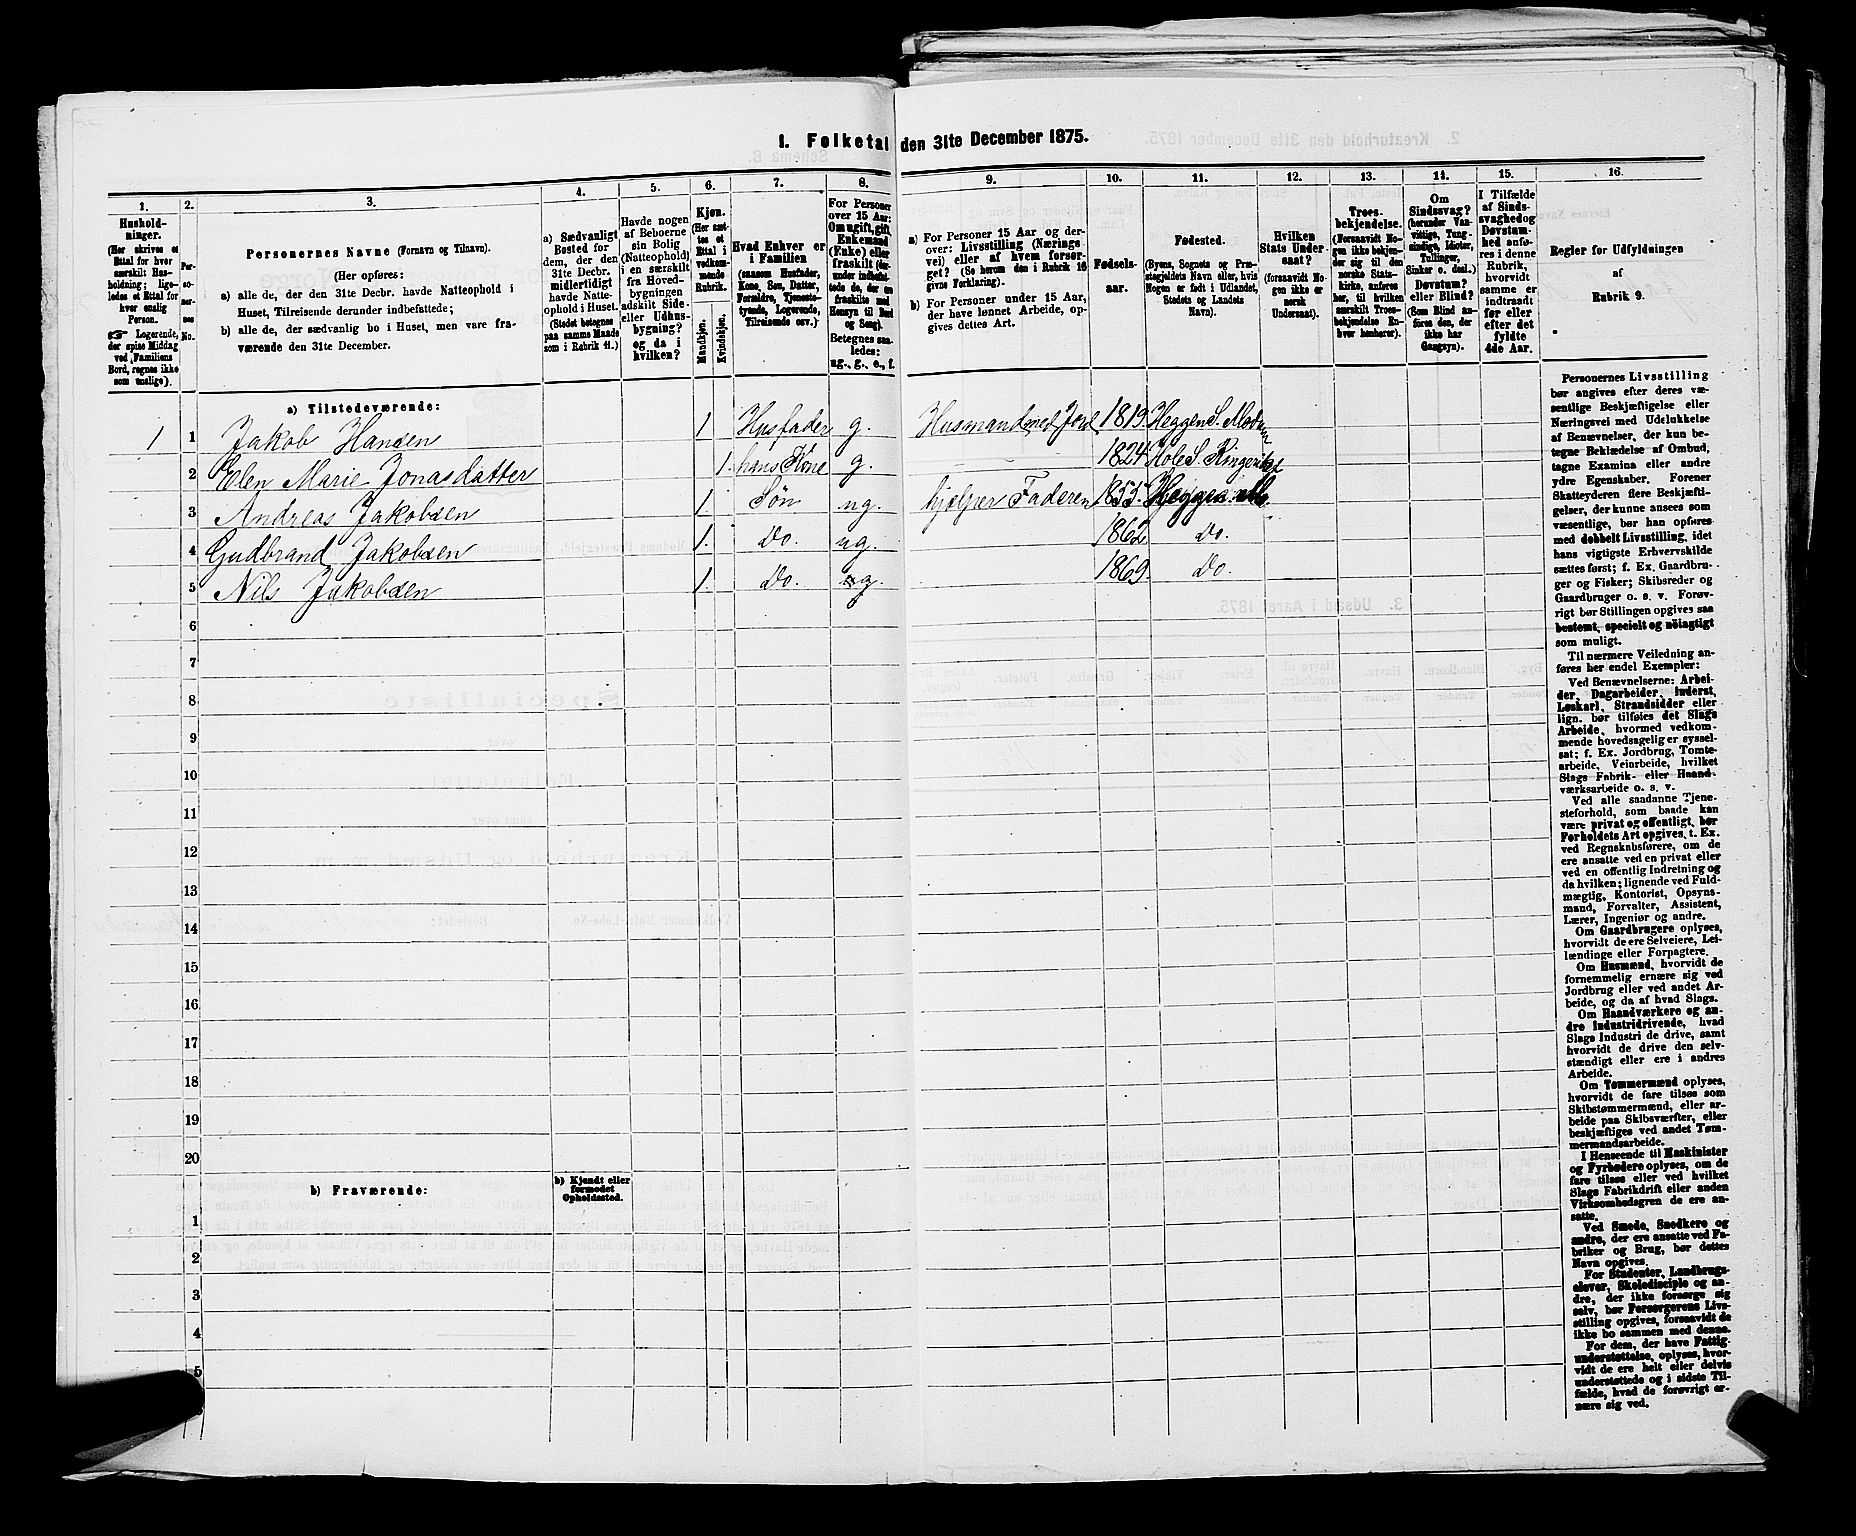 1. Folketal den 31te December 1875.
1. 2. 3. 4. 5. 6. 7. 8. 9. 10. 11. 12. 13. 14. 15. 16.
Hushold-
ninger.
(Her skrives et
Ettal for hver
særskilt Hus-
holdning; lige-
ledes et Ettal for
hver enslig
Person.
☞ Logerende,
der spise Middag
ved Familiens
Bord, regnes ikke
som enslige).
Per-
so-
ner-
nes
No.
Personernes Navne (Fornavn og Tilnavn).
(Her opføres:
a) alle de, der den 31te Decbr. havde Natteophold i
Huset, Tilreisende derunder indbefattede;
b) alle de, der sædvanlig bo i Huset, men vare fra-
værende den 31te December.
a) Sædvanligt
Bosted for
dem, der den
31te Decbr.
midlertidigt
havde Natte-
ophold i Huset.
(Stedet betegnes
paa samme Maade
som i Rubrik 11.)
Havde nogen
af Beboerne
sin Bolig
(Natteophold)
i en særskilt
fra Hoved-
bygningen
adskilt Side-
eller Udhus-
bygning?
og da i
hvilken?
Kjøn.
(Her sæt-
tes et
Ettal i
vedkom-
mende
Rubrik.
Mandkjøn.
Kvindekjøn.
Hvad Enhver er
i Familien
(saasom Husfader,
Kone, Søn, Datter,
Forældre, Tjeneste-
tyende, Logerende,
Tilreisende osv.)
For Personer
over 15 Aar:
Om ugift, gift,
Enkemand
(Enke) eller
fraskilt (der-
under indbefat-
tede de, der ere
fraskilte med
Hensyn til Bord
og Seng).
Betegnes saa-
ledes:
ug., g., e., f.
a) For Personer 15 Aar og der-
over: Livsstilling (Nærings-
vei) eller af hvem forsør-
get? (Se herom den i Rubrik 16
givne Forklaring).
b) For Personer under 15 Aar,
der have lønnet Arbeide, op-
gives dettes Art.
Fødsels-
aar.
Fødested.
(Byens, Sognets og Præ-
stegjeldets Navn eller, hvis
Nogen er født i Udlandet,
Stedets og Landets
Navn).
Hvilken
Stats Under-
saat?
(forsaavidt No-
gen ikke er
norsk
Undersaat).
Troes-
bekjendelse.
(Forsaavidt No-
gen ikke bekjen-
der sig til den
norske Stats-
kirke, anføres
her, til hvilken
særskilt Troes-
bekjendelse En-
hver henhører).
Om
Sindssvag?
(herunder Van-
vittige, Tung-
sindige, Idioter,
Tullinger,
Sinker o. desl.)
Døvstum?
eller Blind?
(Som Blind an-
føres den, der
ikke har
Gangsyn).
I Tilfælde
af Sinds-
svaghed og
Døvstum-
hed anfø-
res i denne
Rubrik,
hvorvidt
samme er
indtraadt
før eller
efter det
fyldte
4de Aar.
Regler for Udfyldningen
af
Rubrik 9.
a) Tilstedeværende:
1 1 Jakob Hansen 1 Husfader g. Husmand med Jord 1819. Heggen S. Modum
2 Elen Marie Jonasdatter 1. hans Kone g. 1824 Hole S. Ringerike
3 Andreas Jakobsen 1. Søn ug. hjelper Faderen 1855. Heggen
4 Gudbrand Jakobsen 1. Do. ug. 1862 Do.
5 Nils Jakobsen 1. Do. ug. 1869. Do.
6
7
8
9
10
11
12
13
14
15
16
17
18
19
20
b) Fraværende:
b) Kjendt eller
formodet
Opholdssted.
1
2
3
4
5
Personernes Livsstilling
bør angives efter deres væ-
sentlige Beskjæftigelse eller
Næringsvei med Udelukkelse
af Benævnelser, der kun be-
tegne Beklædelse af Ombud,
tagne Examina eller andre
ydre Egenskaber. Forener
Skatteyderen flere Beskjæfti-
gelser, der kunne ansees som
væsentlige, bør han opføres
med dobbelt Livsstilling, idet
hans vigtigste Erhvervskilde
sættes først; f. Ex. Gaardbru-
ger og Fisker; Skibsreder og
Gaardbruger o. s. v. Forøv-
rigt bør Stillingen opgives saa
bestemt, specielt og nøiagtigt
som muligt.
Til nærmere Veiledning an-
føres her endel Exempler:
Ved Benævnelserne: Arbei-
der, Dagarbeider, Inderst,
Løskarl, Strandsidder eller
lign. bør tilføies det Slags
Arbeide, hvormed vedkom-
mende hovedsagelig er syssel-
sat; f. Ex. Jordbrug, Tomte-
arbeide, Veiarbeide, hvilket
Slags Fabrik- eller Haand-
værksarbeide o. s. v.
Ved alle saadanne Tjene-
steforhold, som baade kan
være privat og offentligt, bør
Forholdets Art opgives, t. Ex.
ved Regnskabsførere, om de
ere ansatte ved en privat eller
ved en offentlig Indretning og
da hvilken; lignende ved Fuld-
mægtig, Kontorist, Opsyns-
mand, Forvalter, Assistent,
Lærer, Ingeniør og andre.
Om Gaardbrugere oplyses,
hvorvidt de ere Selveiere, Lei-
lændinge eller Forpagtere.
Om Husmænd, hvorvidt de
fornemmelig ernære sig ved
Jordbrug eller ved andet Ar-
beide, og da af hvad Slags.
Om Haandværkere og an-
dre Industridrivende, hvad
Slags Industri de drive, samt
hvorvidt de drive den selv-
stændigt eller ere i andres
Arbeide.
Om Tømmermænd oplyses,
hvorvidt de fare tilsøs som
Skibstømmermænd, eller ar-
beide paa Skibsværfter, eller
beskjæftiges ved andet Tøm-
mermandsarbeide.
I Henseende til Maskinister
og Fyrbødere oplyses, om de
fare tilsøs eller ved hvilket
Slags Fabrikdrift eller anden
Virksomhedsgren de ere an-
satte.
Ved Smede, Snedkere og
andre, der ere ansatte ved Fa-
briker og Brug, bør dettes
Navn opgives.
For Studenter, Landbrugs-
elever, Skoledisciple og an-
dre, der ikke forsørge sig
selv, bør Forsørgerens Livs-
stilling opgives, forsaavidt de
ikke bo sammen med denne.
For dem, der have Fattig-
understøttelse, oplyses, hvor-
vidt de ere helt eller delvis
understøttede og i sidste Til-
fælde, hvad de forøvrigt er-
nære sig ved.